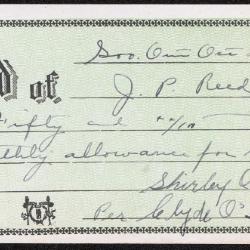 Goo. Oui Oui
d of J. P. Reed
Fifty and no/100
thly allowance for
Shirley
Per Clyde O'